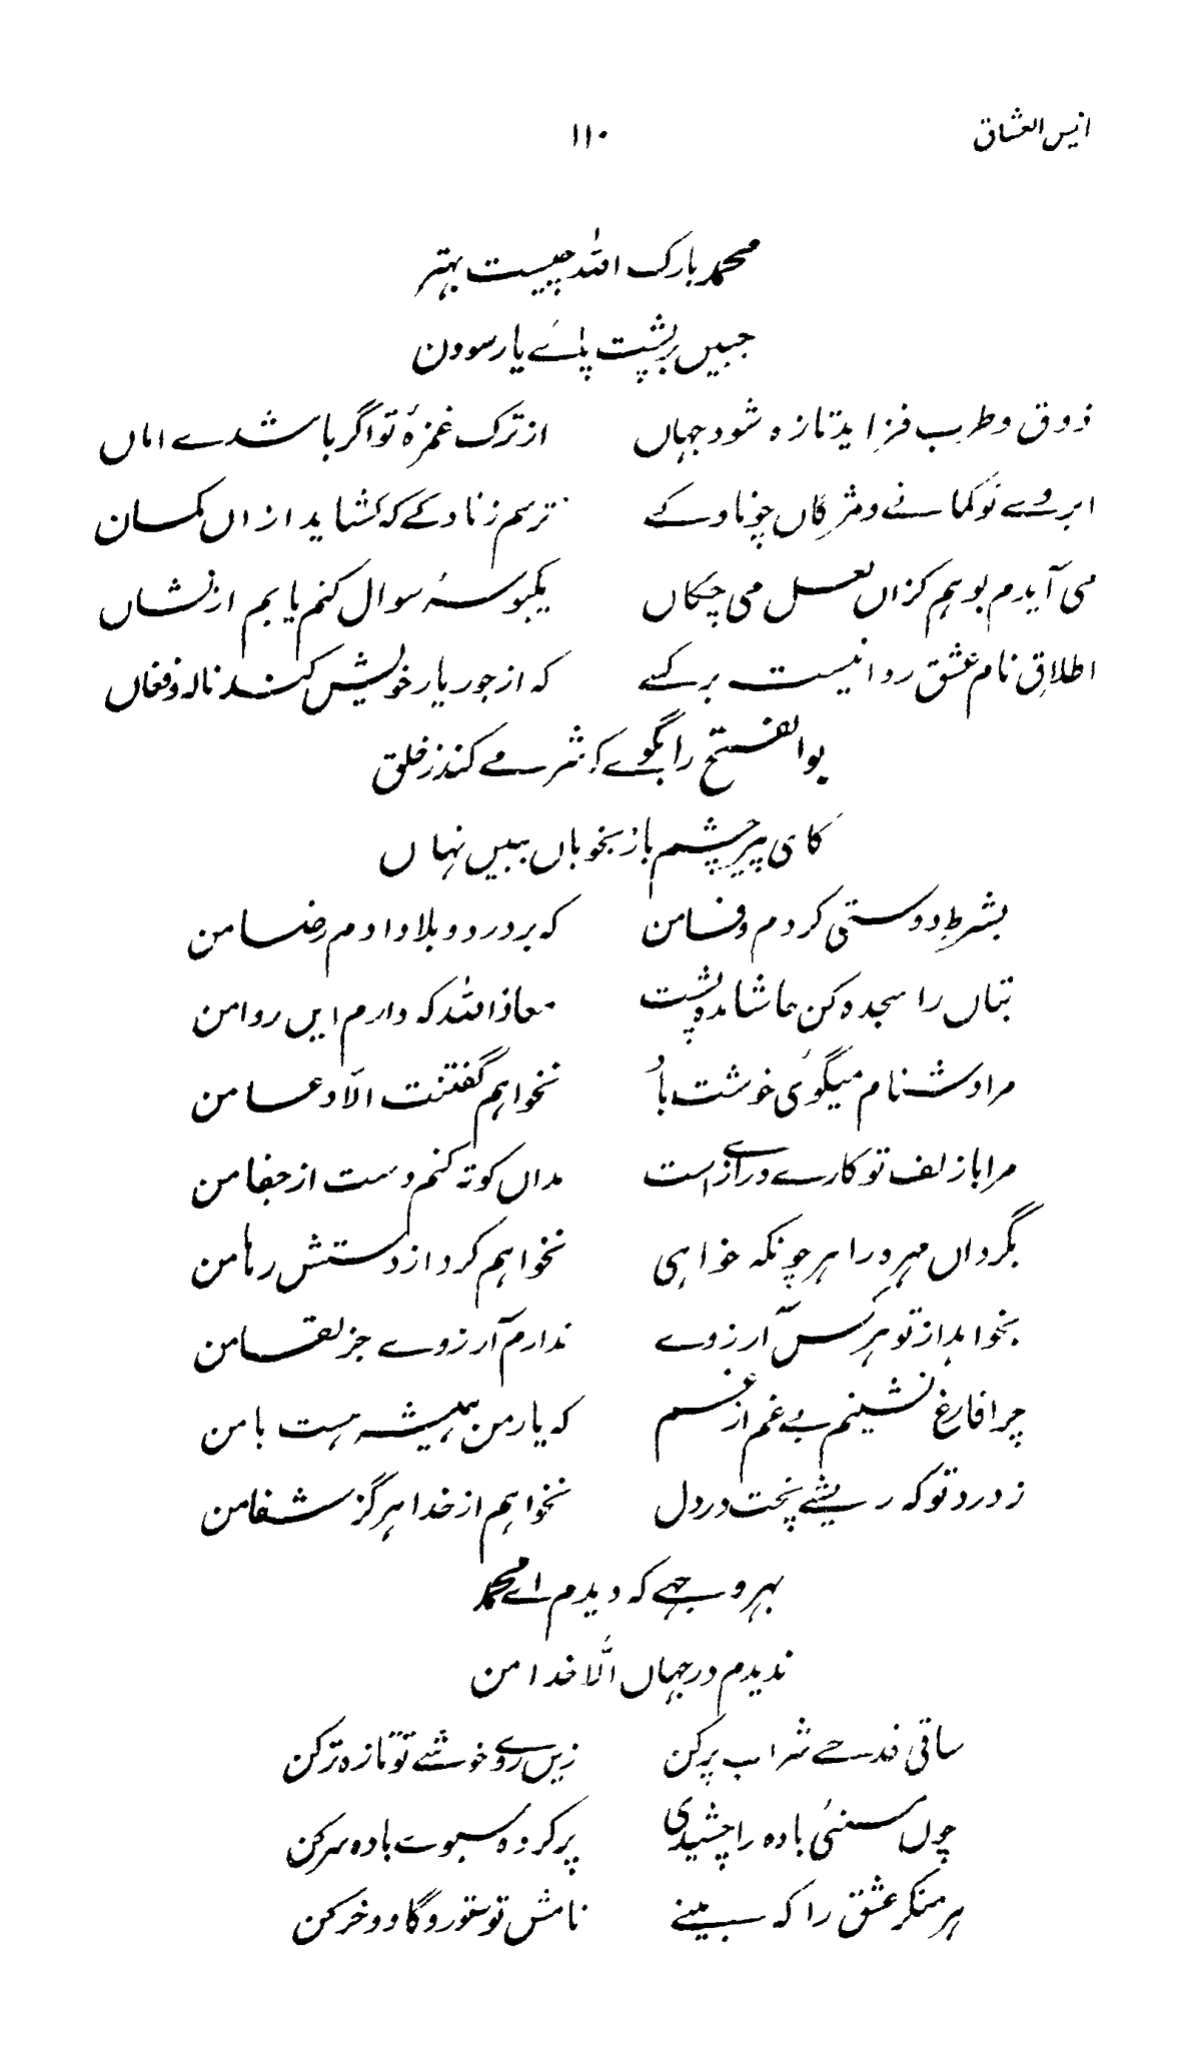 انیس العشاق ۱۱۰
محمد بارک اللہ چیست بہتر
جبیں بر پشت پائے یار سودن
ذوق و طرب فزاید تازہ شود جہاں از ترک غمزۂ تو اگر باشدے اماں
ابروے تو کمانے و مژگاں چو ناوکے ترسم ز ناوکے کہ کشاید ازاں کمان
می آیدم بوہم کزاں لعل می چکاں یکبوسۂ سوال کنم یابم از نشاں
اطلاقِ نام عشق روا نیست بر کسے کہ از جور یار خویش کند نالہ و فغاں
بوالفتح را بگوے کہ شرمے کند ز خلق
کای پیر چشم باز بخوباں ببیں نہاں
بشرطِ دوستی کردم وفا من کہ بر درد و بلا دادم رضا من
بتاں را سجدہ کن حاشا مدہ پشت معاذاللہ کہ دارم ایں روا من
مرا دشنام میگوئی خوشت باد نخواہم گفتنت الّا دعا من
مرا با زلف تو کارے دراز است مداں کوتہ کنم دست از جفا من
بگرداں مہرہ را ہر چونکہ خواہی نخواہم کرد از دستش رہا من
بخواہد از تو ہر کس آرزوے ندارم آرزوے جز لقا من
چرا فارغ نشینم بے غم از غم کہ یار من ہمیشہ ہست با من
ز درد تو کہ ریشے پخت در دل نخواہم از خدا ہرگز شفا من
بہر وجہے کہ دیدم اے محمد
ندیدم در جہاں الّا خدا من
ساقی قدحے شراب پر کن زیں رو خوشے تو تازہ تر کن
چوں مستئی بادہ را چشیدی پر کردہ سبوت بادہ سر کن
ہر منکر عشق را کہ بینے نامش تو ستور و گاو و خر کن